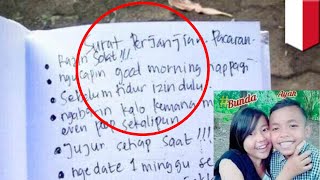 Surat Perjanjian Pacaran.
Rajin Solat !!!
ngucapin good morning
Sebelum tidur izin dulu
ngabarin kalo kemana
even poop sekalipun
Jujur setiap saat !!!
ngedate 1 minggu
Bunda
Ayah